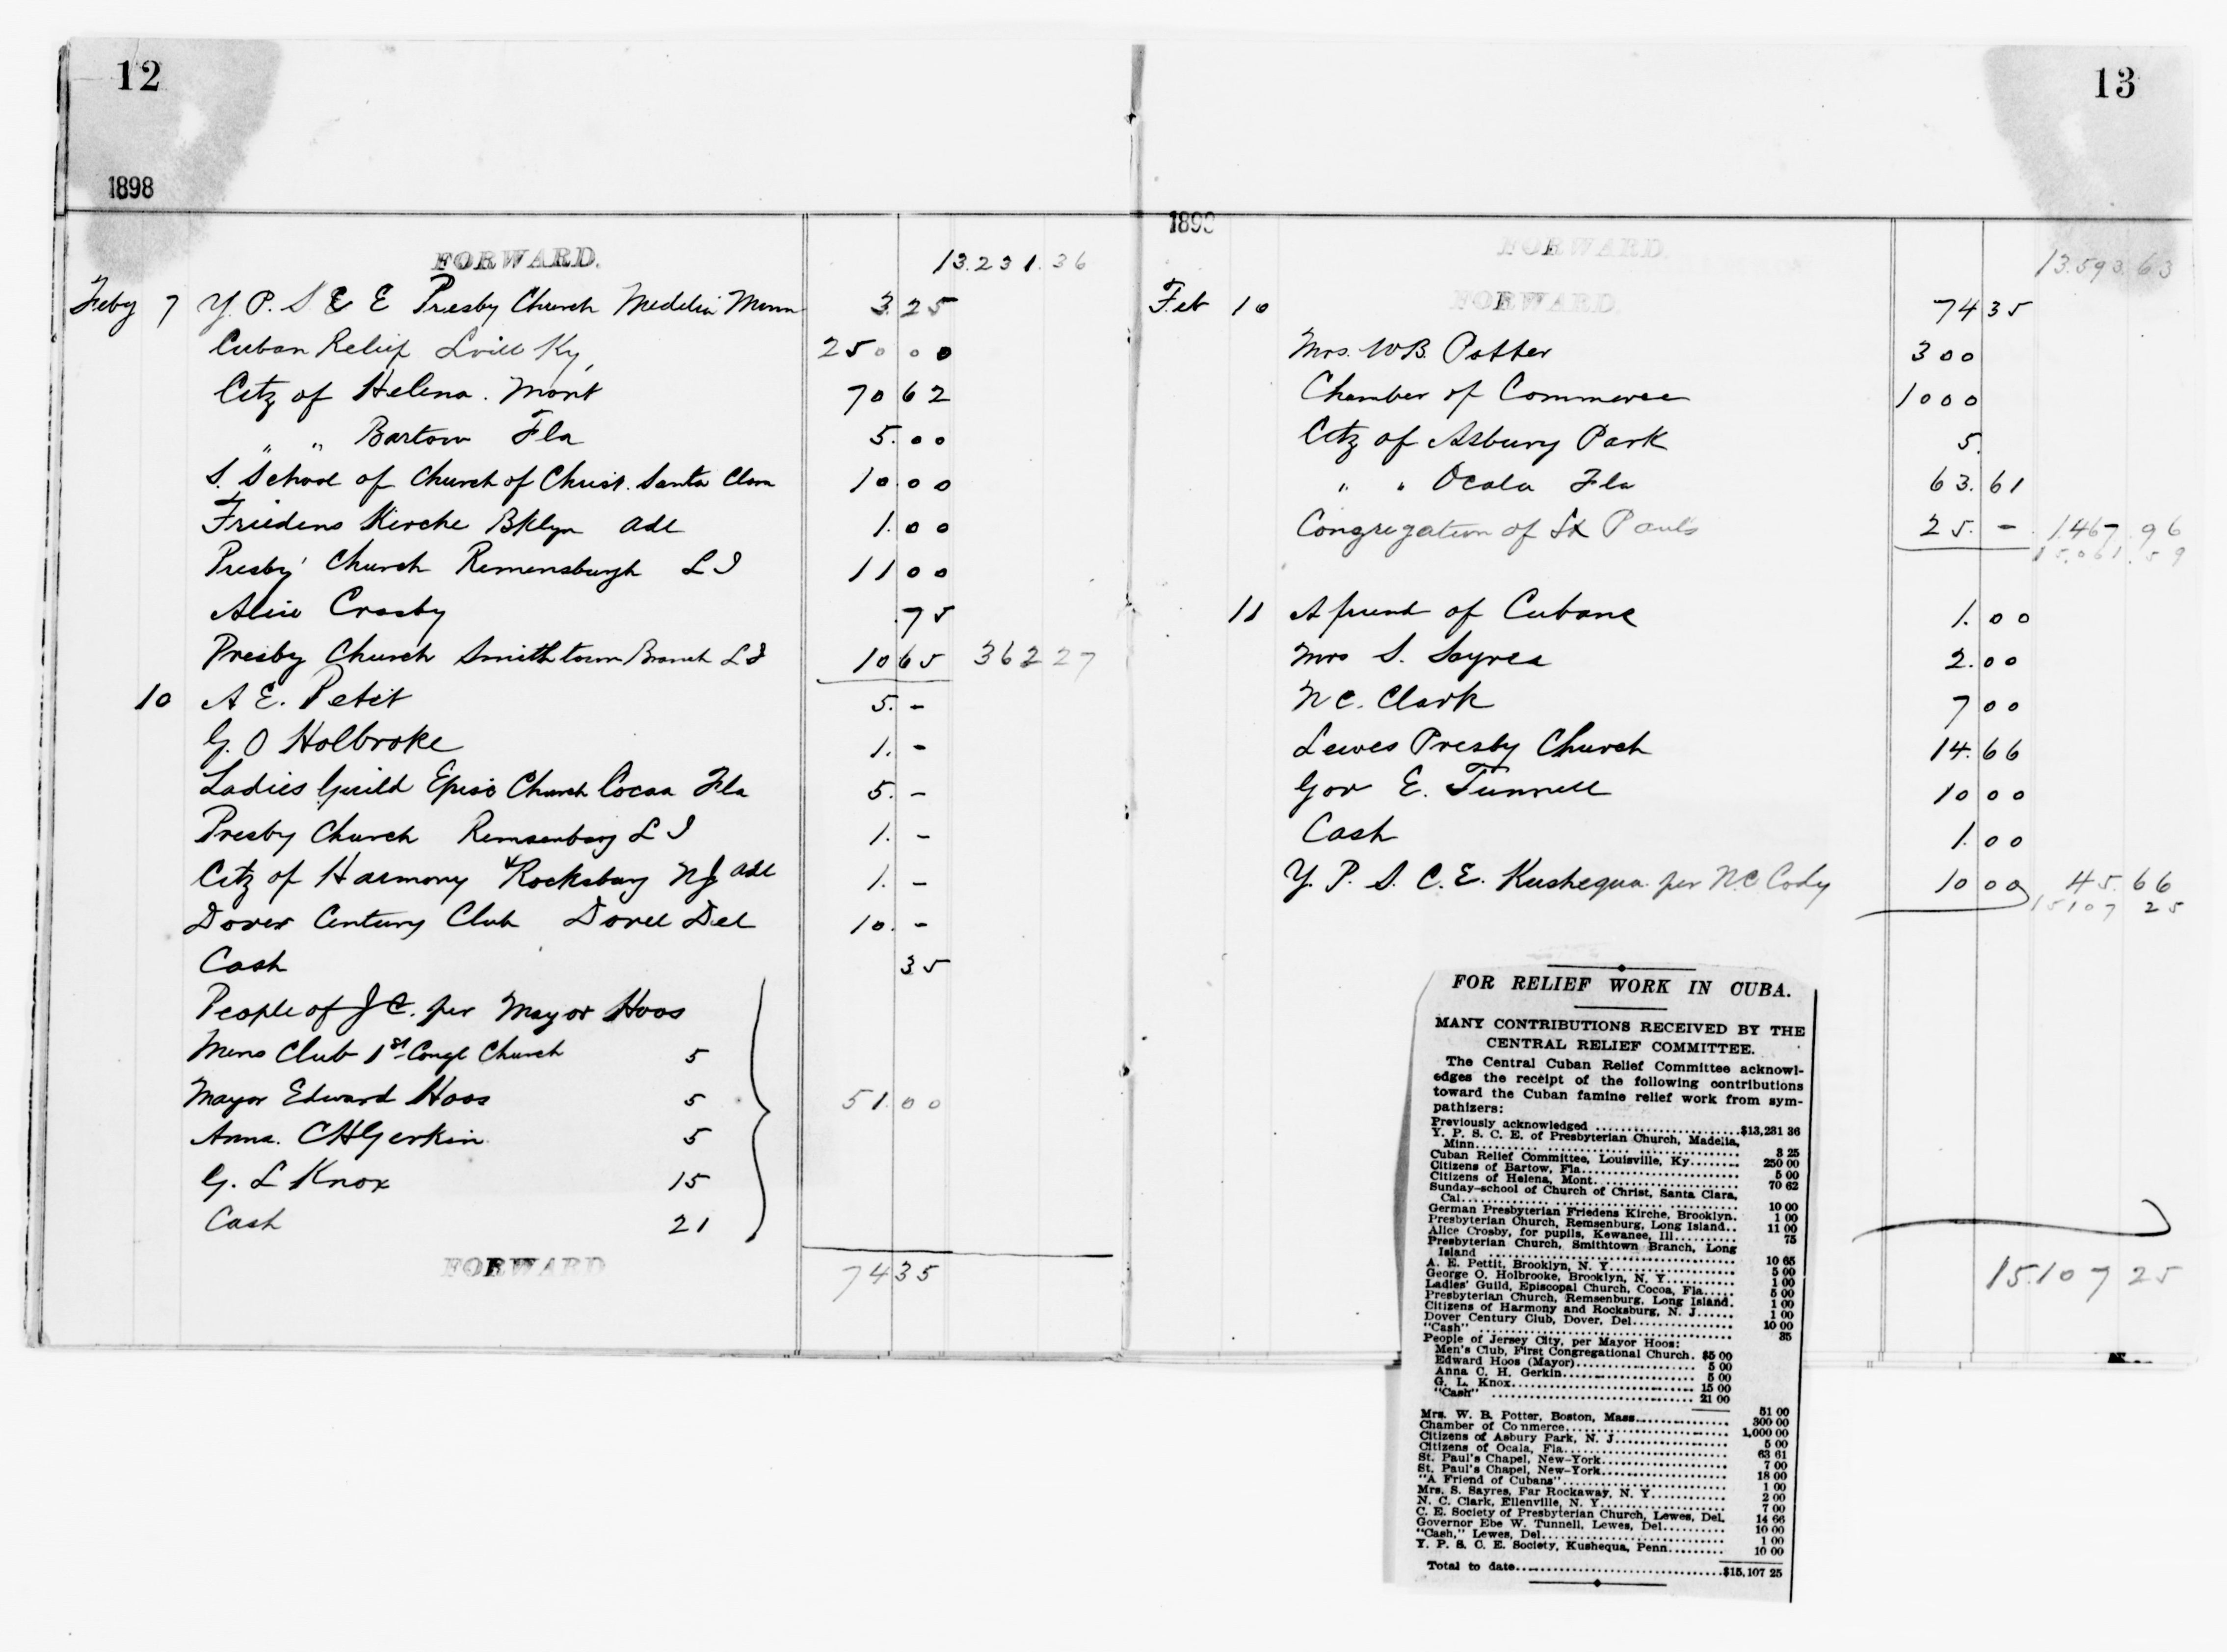 12
1898
FORWARD.
13.231.36
Feby 7 Y. P. S C E Presby Church Medelia Minn 3.25
Cuban Relief Lvill Ky, 250 00
Citz of Helena. Mont 70 62
" " Bartow Fla 5.00
S. School of Church of Christ. Santa Clara 10.00
Friedens Kirche Bklyn adl 1.00
Presby Church Remensburgh L I 11 00
Alice Crosby .75
Presby Church Smithtown Branch L I 10 65 362 27
10 A E. Petit 5. -
G. O Holbroke 1. -
Ladies Guild Episc Church Cocoa Fla 5. -
Presby Church Remsenburg L I 1. -
Citz of Harmony & Rocksburg NJ adl 1. -
Dover Century Club Dover Del 10. -
Cash 35
People of J C. per Mayor Hoos
Mens Club 1st Congl Church 5
Mayor Edward Hoos 5
51.00
Anna. C H Gerkin 5
G. L Knox 15
Cash 21
FORWARD
74 35
13
1898
FORWARD.
13.593.63
FORWARD.
Feb 10 74 35
Mrs. W B. Potter 300
Chamber of Commerce 1000
Citz of Asbury Park 5.
" " Ocala Fla 63.61
Congregation of St Pauls 25. - 1467.96
15.061.59
11 A friend of Cubans 1.00
Mrs S. Sayres 2.00
N C. Clark 7 00
Lewes Presby Church 14.66
Gov E. Tunnell 10 00
Cash 1.00
Y. P. S. C. E. Kushequa per N C Cody 10 00 45.66
15107 25
FOR RELIEF WORK IN CUBA.
MANY CONTRIBUTIONS RECEIVED BY THE
CENTRAL RELIEF COMMITTEE.
The Central Cuban Relief Committee acknowl-
edges the receipt of the following contributions
toward the Cuban famine relief work from sym-
pathizers:
Previously acknowledged ........................$13,231 36
Y. P. S. C. E. of Presbyterian Church, Madelia,
Minn.................................. 3 25
Cuban Relief Committee, Louisville, Ky........ 250 00
Citizens of Bartow, Fla........................ 5 00
Citizens of Helena, Mont....................... 70 62
Sunday-school of Church of Christ, Santa Clara,
Cal........................................ 10 00
German Presbyterian Friedens Kirche, Brooklyn. 1 00
Presbyterian Church, Remsenburg, Long Island.. 11 00
Alice Crosby, for pupils, Kewanee, Ill.......... 75
Presbyterian Church, Smithtown Branch, Long
Island .................................... 10 65
A. E. Pettit, Brooklyn, N. Y................... 5 00
George O. Holbrooke, Brooklyn, N. Y........... 1 00
Ladies' Guild, Episcopal Church, Cocoa, Fla..... 5 00
Presbyterian Church, Remsenburg, Long Island. 1 00
Citizens of Harmony and Rocksburg, N. J...... 1 00
Dover Century Club, Dover, Del................ 10 00
"Cash" ........................................ 35
People of Jersey City, per Mayor Hoos:
Men's Club, First Congregational Church. $5 00
Edward Hoos (Mayor)..................... 5 00
Anna C. H. Gerkin........................ 5 00
G. L. Knox............................... 15 00
"Cash" .................................. 21 00
51 00
Mrs. W. B. Potter, Boston, Mass............... 300 00
Chamber of Commerce.......................... 1,000 00
Citizens of Asbury Park, N. J.................. 5 00
Citizens of Ocala, Fla.......................... 63 61
St. Paul's Chapel, New-York.................... 7 00
St. Paul's Chapel, New-York.................... 18 00
"A Friend of Cubans".......................... 1 00
Mrs. S. Sayres, Far Rockaway, N. Y............ 2 00
N. C. Clark, Ellenville, N. Y................... 7 00
C. E. Society of Presbyterian Church, Lewes, Del. 14 66
Governor Ebe W. Tunnell, Lewes, Del.......... 10 00
"Cash," Lewes, Del............................. 1 00
Y. P. S. C. E. Society, Kushequa, Penn......... 10 00
Total to date..................................$15,107 25
15.107 25